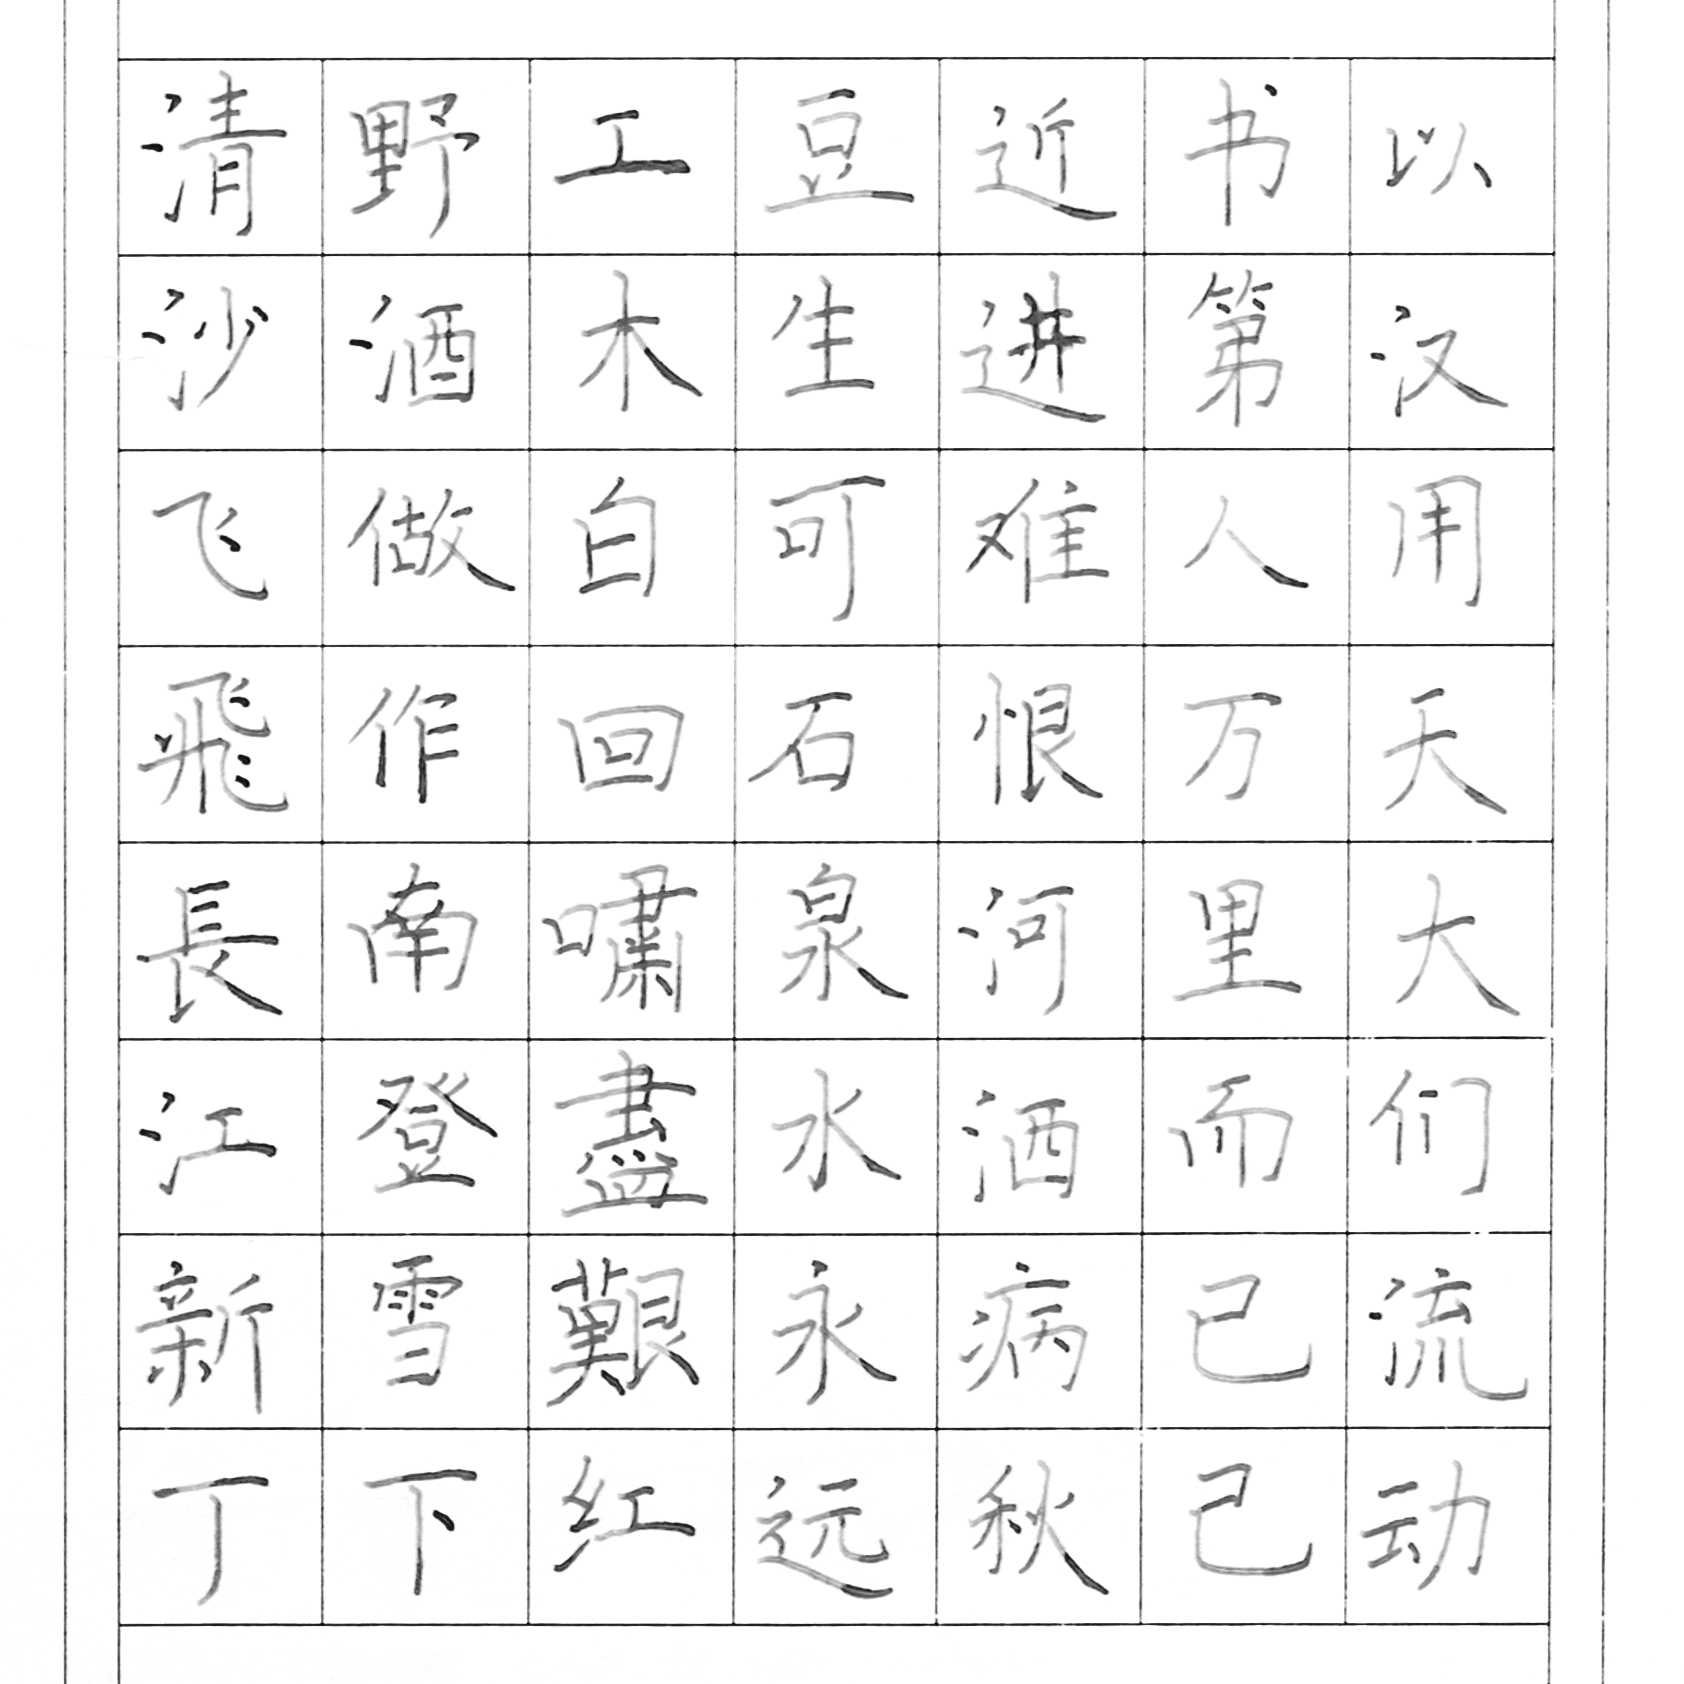 以汉用天大们流动
书第人万里而已己
近进难恨河洒病秋
豆生可石泉水永远
工木白回嘯盡艱红
野酒做作南登雪下
清沙飞飛長江新丁